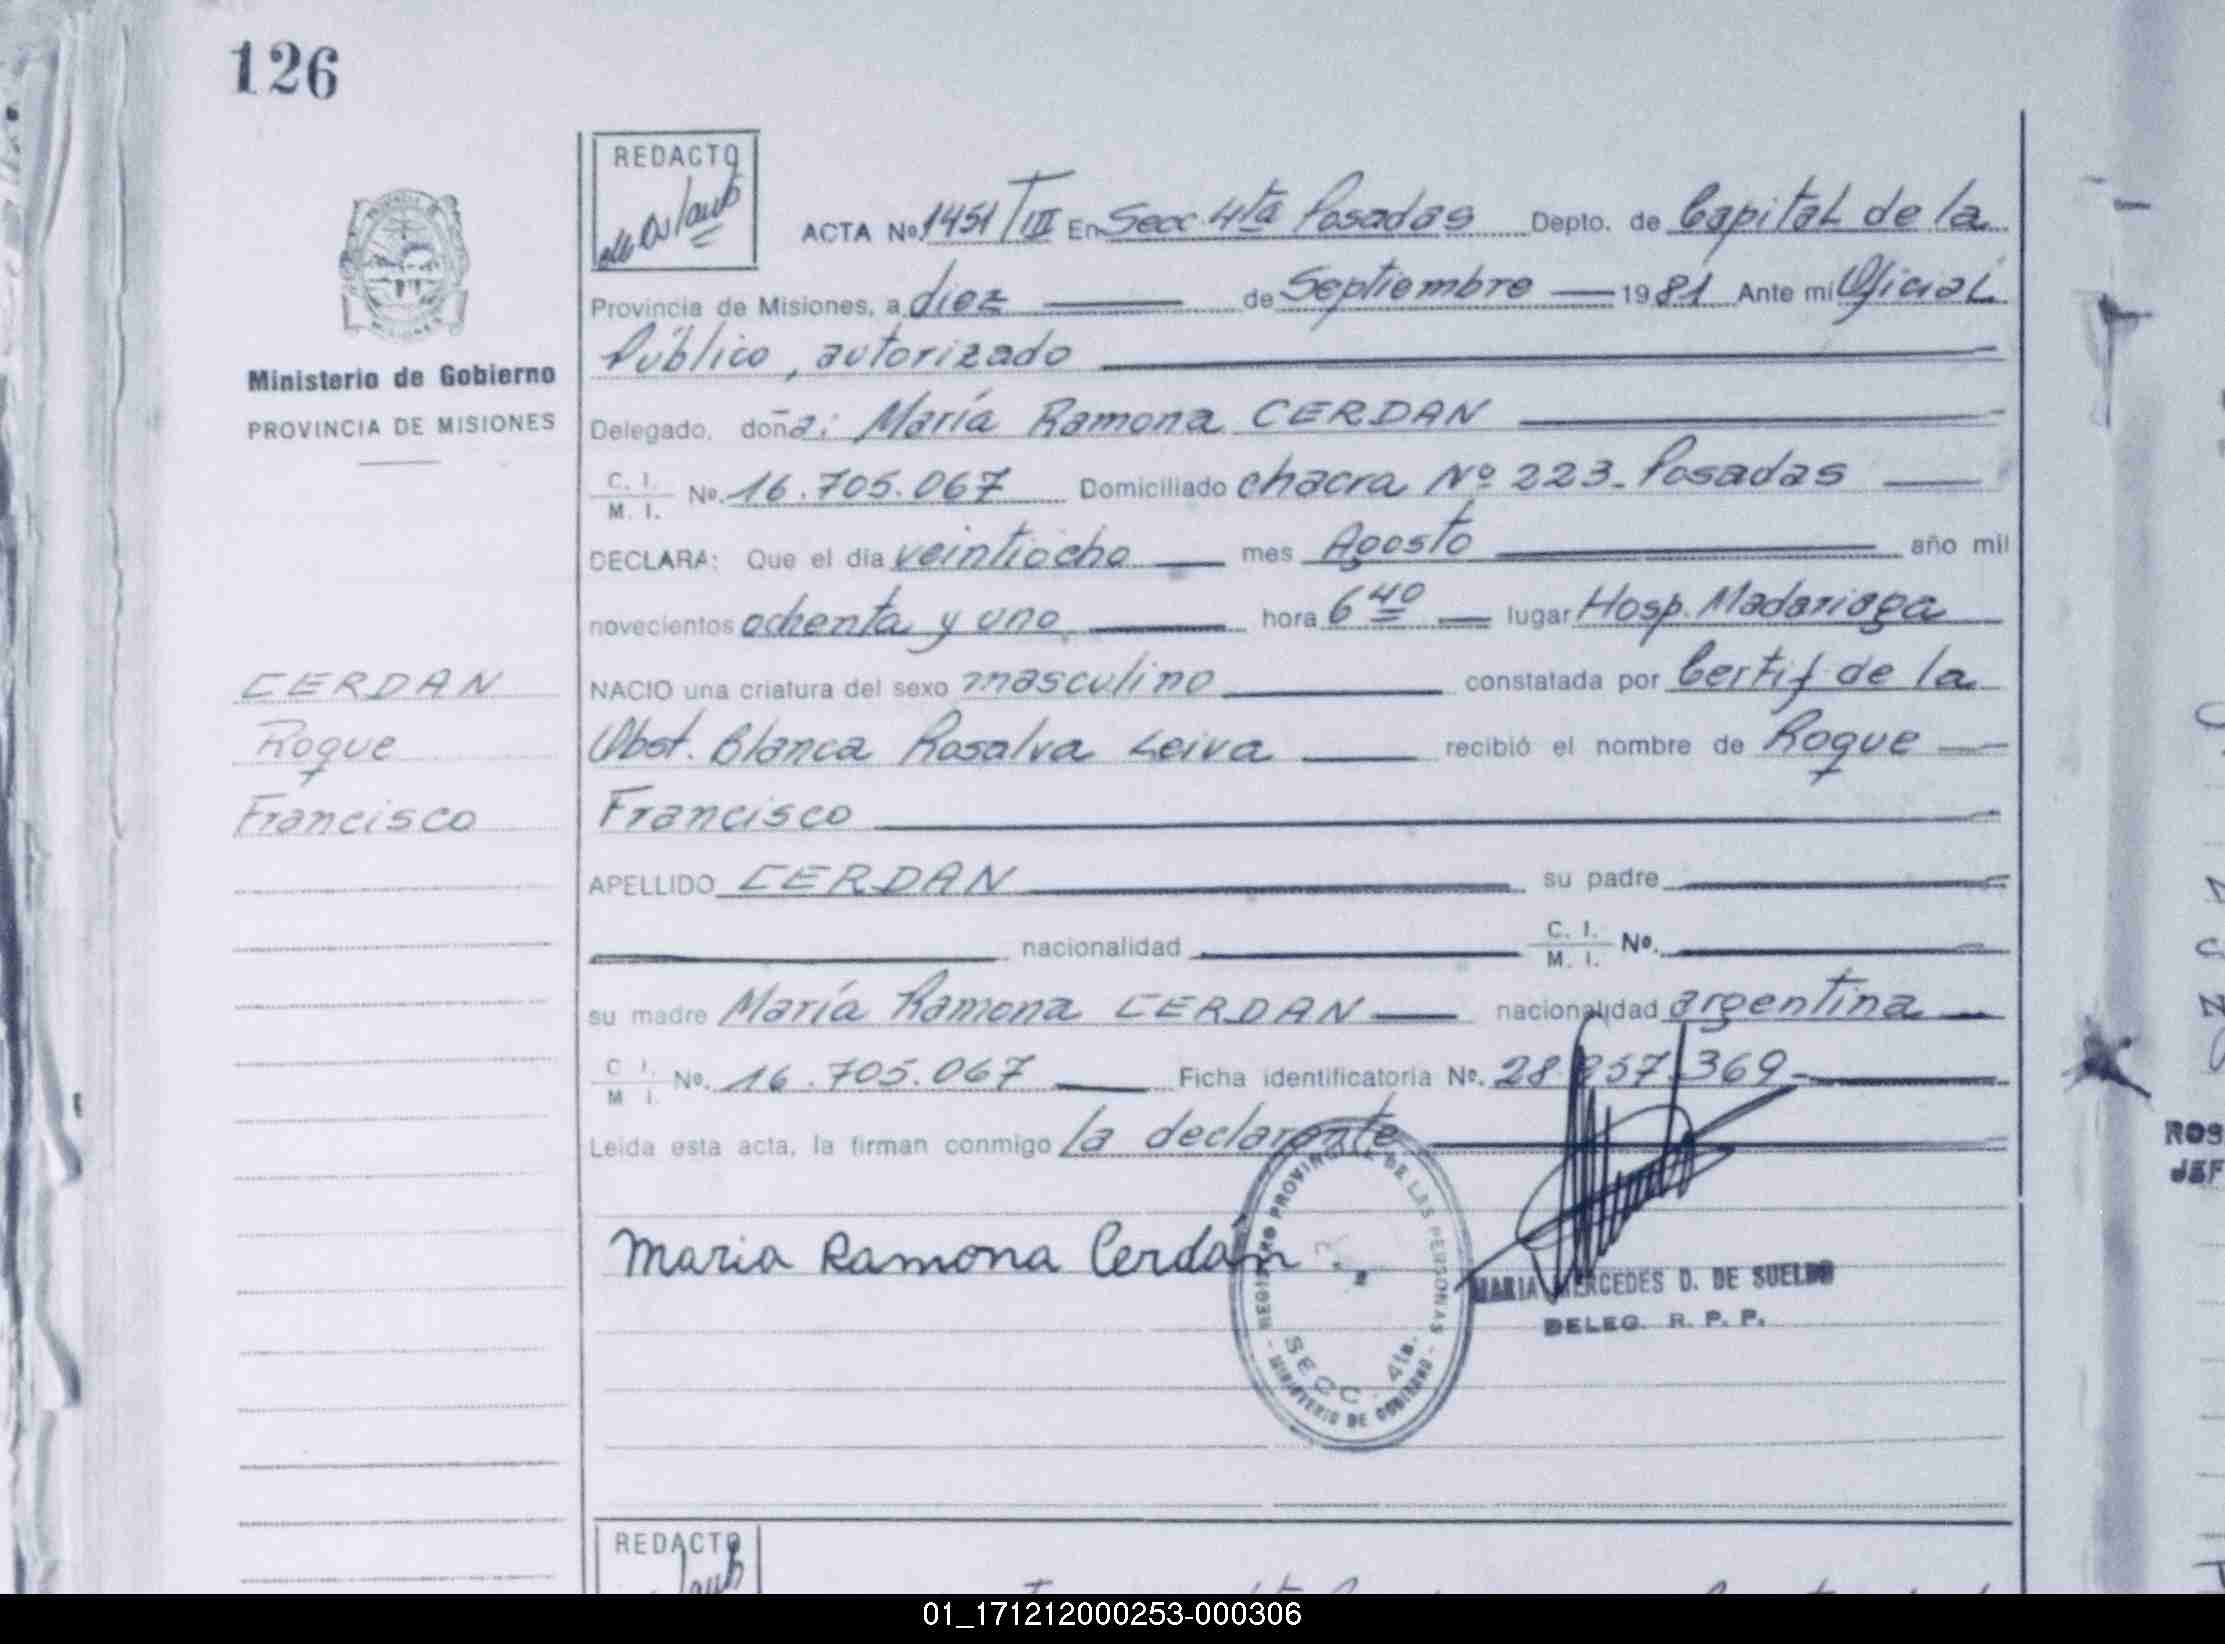 126
REDACTO
ACTA Nº 1451/T III En Secc 4ta Posadas Depto. de Capital de la
Provincia de Misiones, a diez de Septiembre 1981 Ante mi Oficial
Público, autorizado
Ministerio de Gobierno
PROVINCIA DE MISIONES
Delegado, doña: María Ramona CERDAN
C. I. / M. I. Nº. 16.705.067 Domiciliado chacra Nº 223_ Posadas
DECLARA: Que el día veintiocho mes Agosto año mil
novecientos ochenta y uno hora 6 40 lugar Hosp. Madariaga
NACIO una criatura del sexo masculino constatada por Certif de la
Obst. Blanca Rosalva Leiva recibió el nombre de Roque
Francisco
CERDAN
Roque
Francisco
APELLIDO CERDAN su padre
nacionalidad C. I. / M. I. Nº.
su madre María Ramona CERDAN nacionalidad argentina
C. I. / M. I. Nº. 16.705.067 Ficha identificatoria Nº. 28 257 369
Leída esta acta, la firman conmigo la declarante
Maria Ramona Cerdán
REGISTRO PROVINCIAL DE LAS PERSONAS
SECC. 4ta.
- MINISTERIO DE GOBIERNO -
MARIA MERCEDES D. DE SUELDO
DELEG. R. P. P.
ROS
JEF
REDACTO
01_171212000253-000306